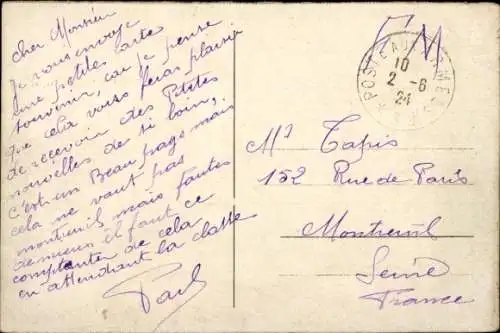 cher Monsieur
Je vous envoye
une petites carte
souvenir, car je pense
que cela vous feras plaisir
de recevoir des Petites
nouvelles de si loin,
c'est un Beau pays mais
cela ne vaut pas
montreuil mais fautes
de mieux il faut ce
compenter de cela
en attendant la classe
Paul
F.M.
POSTE AUX ARMEES
10
2 - 6
24
Mr Tapis
152 Rue de Paris
Montreuil
Seine
France